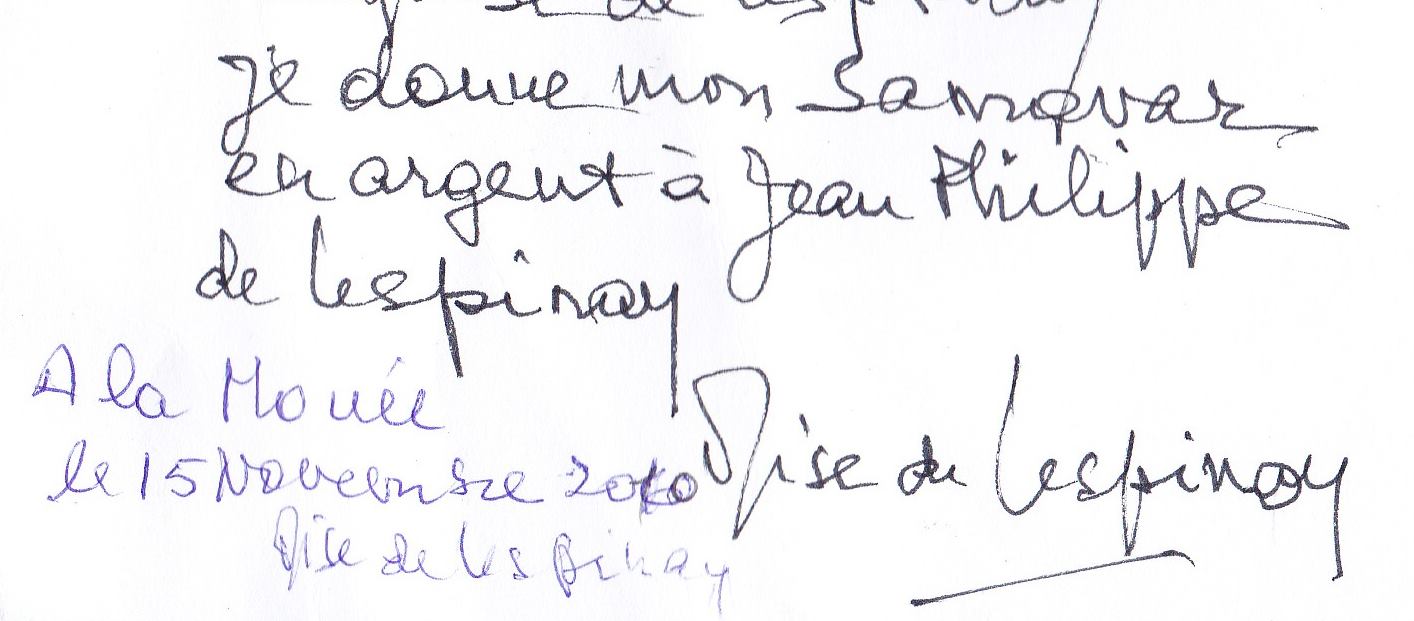 se de Lespinay
je donne mon Samovar
en argent à Jean Philippe
de Lespinay
A la Mouée
le 15 Novembre 2010
Mise de Lespinay
Mise de Lespinay